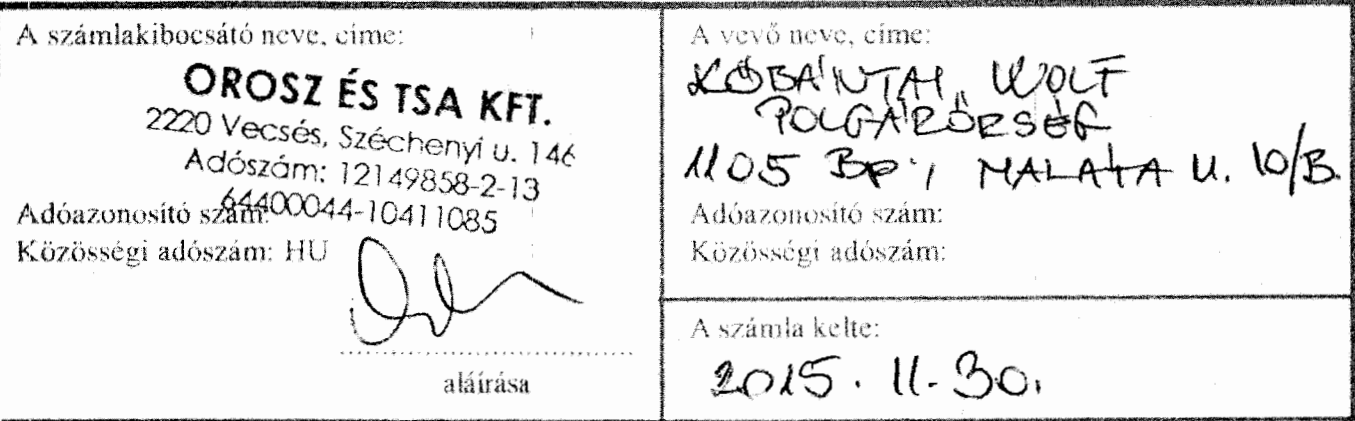 A számlakibocsátó neve, címe:
OROSZ ÉS TSA KFT.
2220 Vecsés, Széchenyi u. 146
Adószám: 12149858-2-13
64400044-10411085
Adóazonosító szám:
Közösségi adószám: HU
aláírása
A vevő neve, címe:
KŐBÁNYAI "WOLF
POLGÁRŐRSÉG
1105 Bp., MALÁTA U. 10/B.
Adóazonosító szám:
Közösségi adószám:
A számla kelte:
2015. 11. 30.